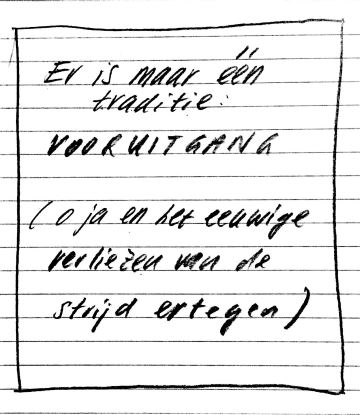 Er is maar één
traditie:
VOORUITGANG
(o ja en het eeuwige
verliezen van de
strijd ertegen)